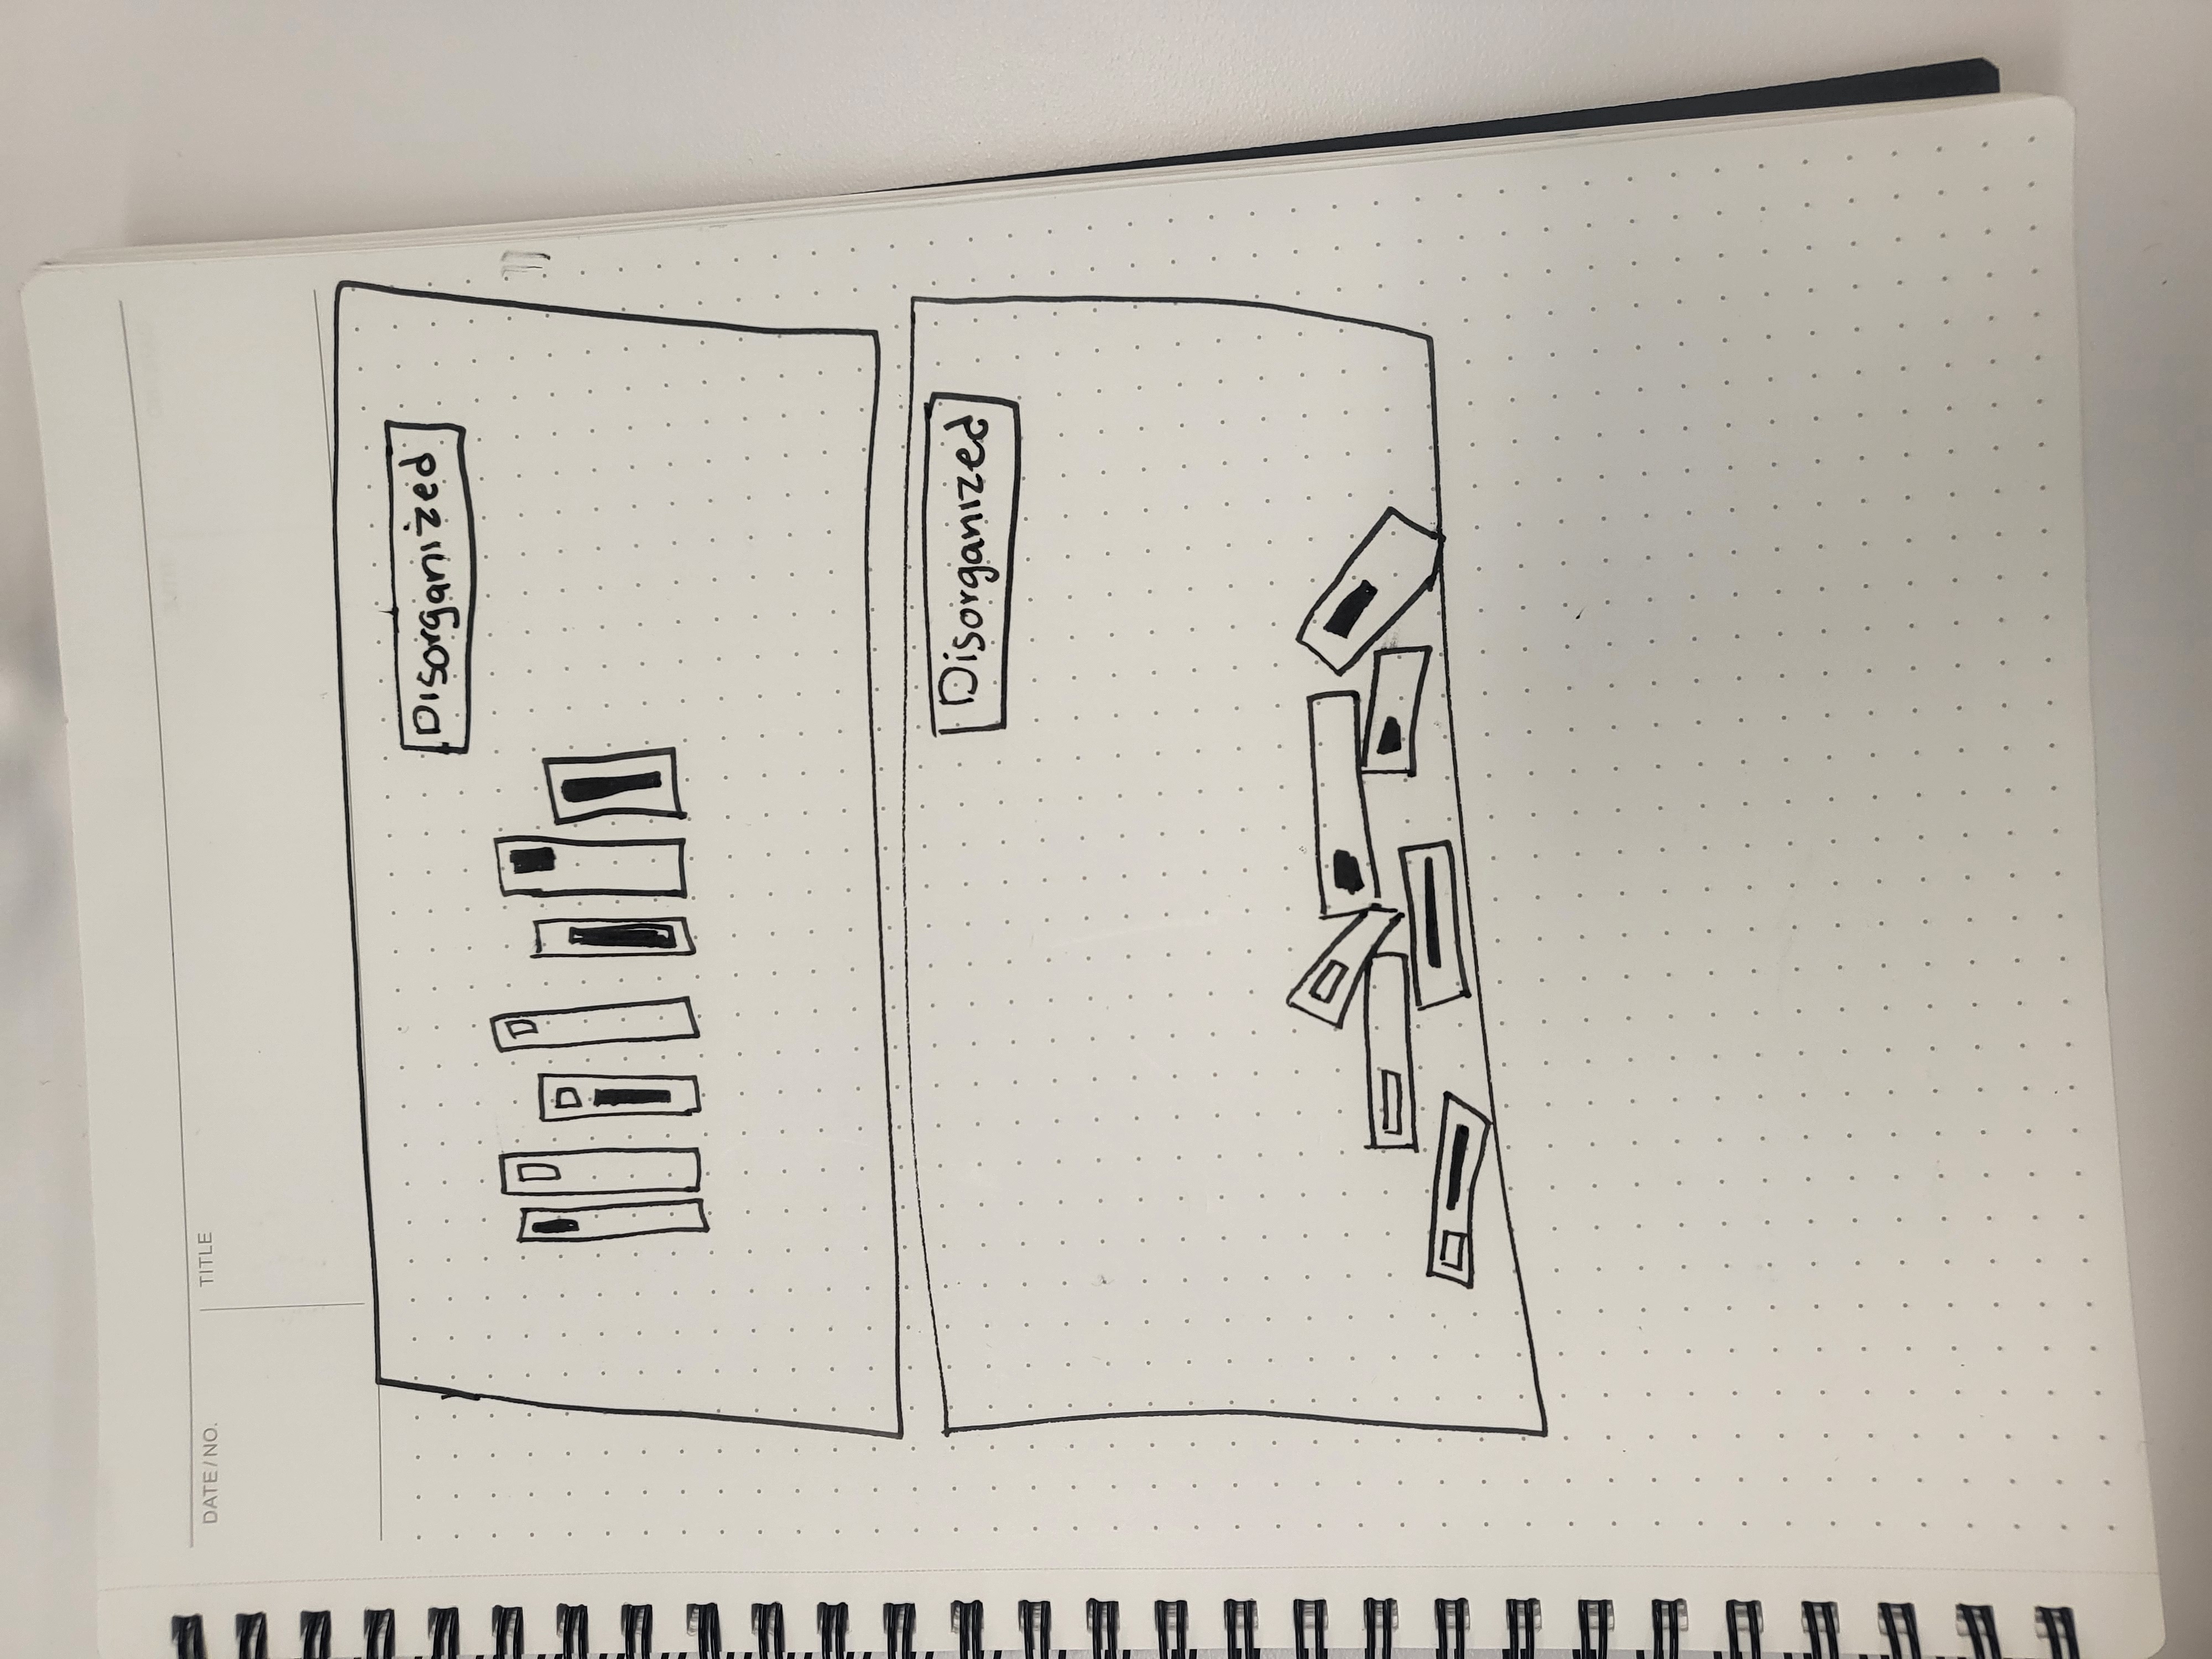 DATE/NO.
TITLE
Disorganized
Disorganized